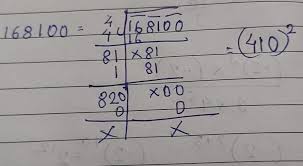 4
168100 = 4 168100 = (410)²
16
81 ×81
1 81
820 ×00
0 0
× ×